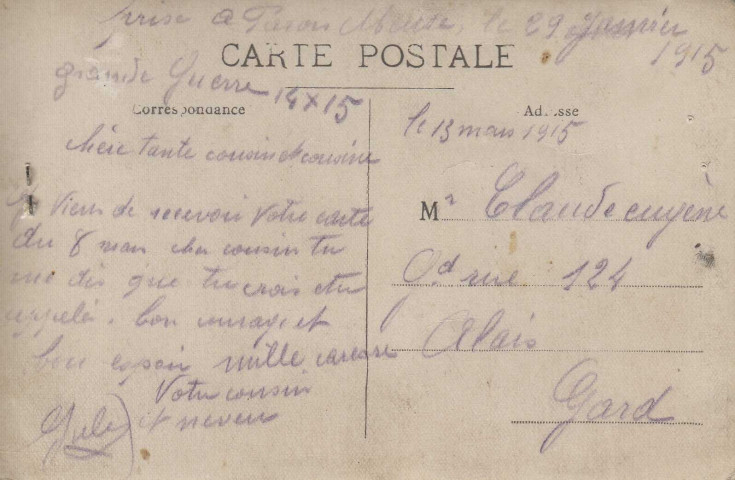 prise a Meuse, le 29 Janvier
1915
CARTE POSTALE
grande Guerre 14 x 15
Correspondance
chère tante cousin et cousine
Je viens de recevoir votre carte
du 8 mars cher cousin tu
me dis que tu crois etre
appelé. bon courage et
bon espoir mille caresse
Votre cousin
et neveu
Adresse
le 13 mars 1915
Mr Claude eugène
Gd rue 124
Alais
Gard